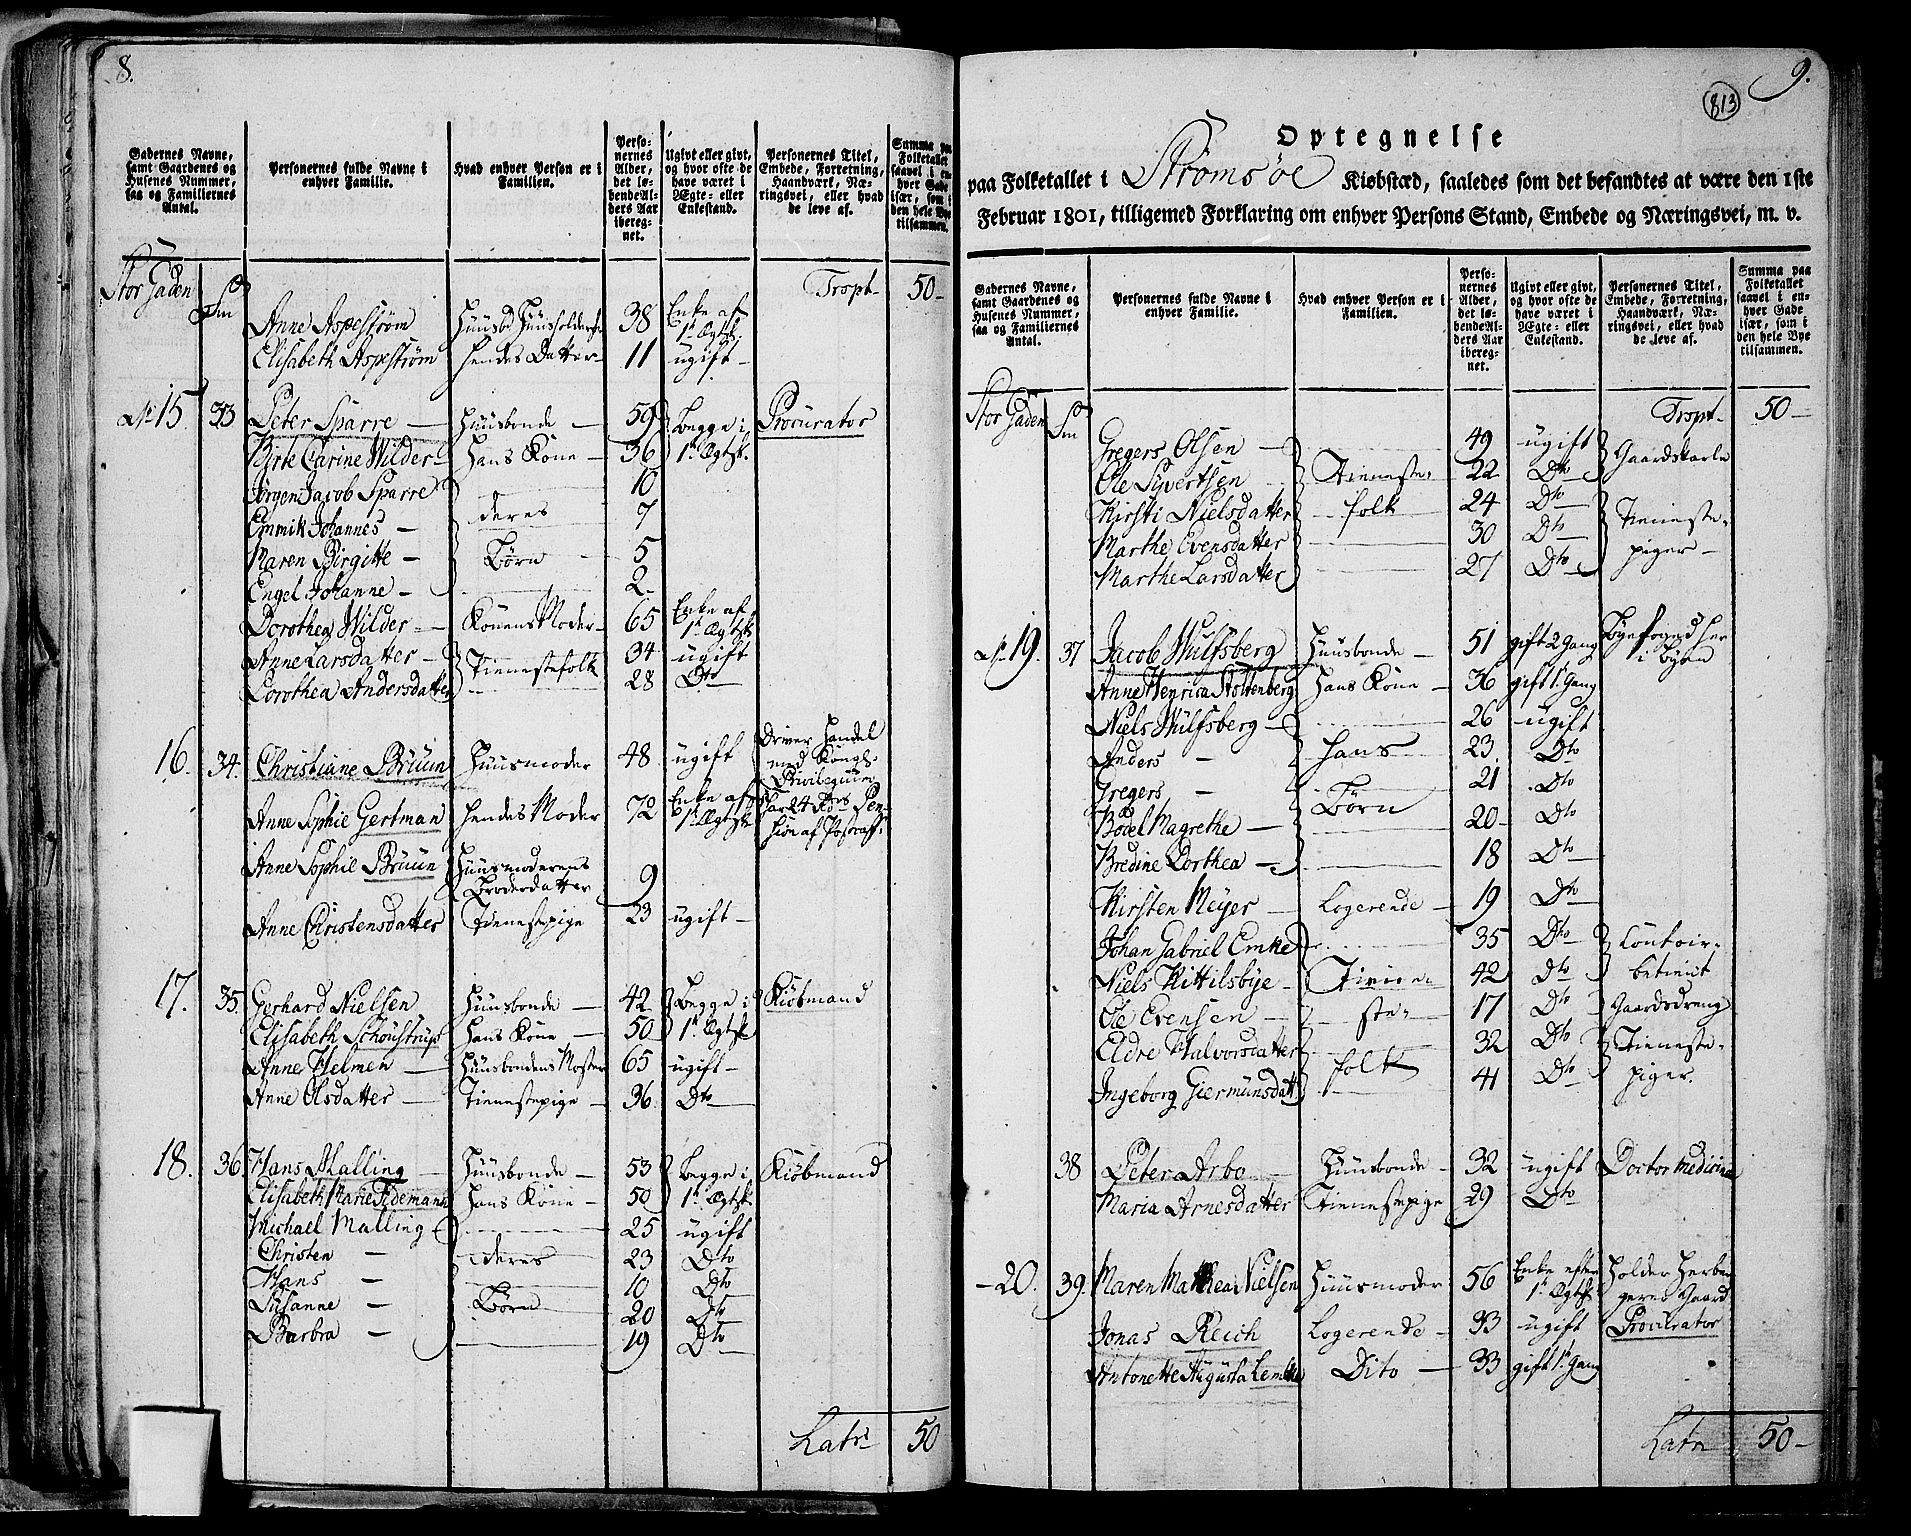 8.
Gadernes Navne, samt Gaardenes og Husenes Nummer, saa og Familiernes Antal.
Personernes fulde Navne i enhver Familie.
Hvad enhver Person er i Familien.
Personernes Alder, det løbende Alders Aar iberegnet.
Ugivt eller givt, og hvor ofte de have været i Ægte- eller Enkestand.
Personernes Titel, Embede, Forretning, Haandværk, Næringsvei, eller hvad de leve af.
Summa paa Folketallet saavel i enhver Gade især, som i den hele Bye tilsammen.
Stor Gaden Trspt 50-
Anne Aspestrøm Huusholderske 38 Enke af 1te Ægtsk.
Elisabeth Aspestrøm hendes Datter- 11 ugift-
No 15. 33 Peter Sparre — Huusbonde — 59 Begge i Procurator
Birte Carine Wilder- Hans Kone — 36 1te Ægtsk.
Jørgen Jacob Sparre 10
Emmik Johannes — deres 7
Maren Birgitte — Børn 5
Engel Johanne — 2
Dorothea Wilder — Konens Moder- 65 Enke af 1te Ægtsk
Anne Larsdatter — Tienestefolk 34 ugift
Dorothea Andersdatter 28 Dto
16. 34. Christiane Bruun Huusmoder 48 ugift Driver Handel med Kongl. Privilegium
Anne Sophie Gertman hendes Moder 72 Enke af 1te Ægtsk har Pension af Postcasse
Anne Sophie Bruun Huusmoderens Broderdatter 9
Anne Christensdatter Tienestepige 23 ugift-
17. 35. Gerhard Nielsen Huusbonde — 42 Begge i Kiøbmand
Elisabeth Schoustrup Hans Kone — 50 1te Ægtsk
Anne Helmen — Huusbondens Moster 65 ugift-
Anne Olsdatter — Tienestepige — 36 Dto
18. 36. Hans Malling — Huusbonde — 53 Begge i Kiøbmand
Elisabeth Marie Tidemann Hans Kone — 50 1te Ægtsk
Michael Malling 25 ugift
Christen — deres 23 Dto
Hans — 10 Dto
Susanne — Børn 20 Dto
Barbra — 19 Dto
Latr 50
9.
813
Optegnelse
paa Folketallet i Strømsøe Kiøbstæd, saaledes som det befandtes at være den 1ste
Februar 1801, tilligemed Forklaring om enhver Persons Stand, Embede og Næringsvei, m. v.
Gadernes Navne, samt Gaardenes og Husenes Nummer, saa og Familiernes Antal.
Personernes fulde Navne i enhver Familie.
Hvad enhver Person er i Familien.
Personernes Alder, det løbende Alders Aar iberegnet.
Ugivt eller givt, og hvor ofte de have været i Ægte- eller Enkestand.
Personernes Titel, Embede, Forretning, Haandværk, Næringsvei, eller hvad de leve af.
Summa paa Folketallet saavel i enhver Gade især, som i den hele Bye tilsammen.
Stor Gaden Trspt- 50-
Gregers Olsen — 49 ugift Gaardskarle
Ole Syvertsen Tieneste- 22 Dto
Kirsti Nielsdatter folk 24 Dto Tieneste-
Marthe Evensdatter 30 Dto piger-
Marthe Larsdatter 27 Dto
No 19. 37 Jacob Wulfsberg Huusbonde — 51 gift 2 Gang Byefoged her i Byen
Anne Henrica Stoltenberg Hans Kone — 36 gift 1te Gang
Niels Wulfsberg — 26 ugift
Anders — Hans 23 Dto
Gregers — 21 Dto
Bodel Magrethe — Børn 20- Dto
Bredine Dorthea — 18 Dto
Kirsten Meyer — Logerende — 19 Dto
Johan Gabriel Emke 35 Dto Contoir-
Niels Kittilsbye — Tiene- 42 Dto betient
Ole Evensen — ste- 17 Dto Gaardsdreng
Eldre Halvorsdatter 32 Dto Tieneste-
Ingeborg Giermunsdatt folk 41 Dto piger.
38 Peter Arbo — Huusbonde — 32 ugift Doctor Medicina
Maria Arnesdatter Tienestepige 29 Dto
-20. 39. Maren Mathea Nielsen Huusmoder 56 Enke efter 1te Ægtsk Holder Herbergered Gaard
Jonas Reich Logerende — 33 ugift Procurator
Antonette Augusta Dito — 33 gift 1te Gang
Latr 50-